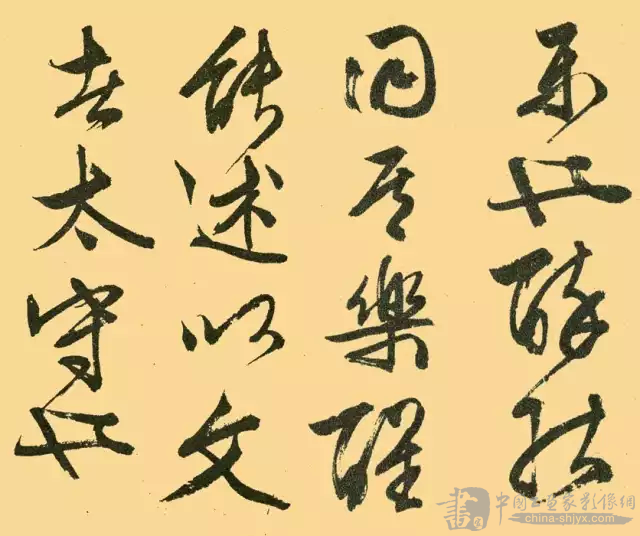 乐也醉能
同其樂醒
能述以文
者太守也
書 中國書画家影像網
china-shjyx.com